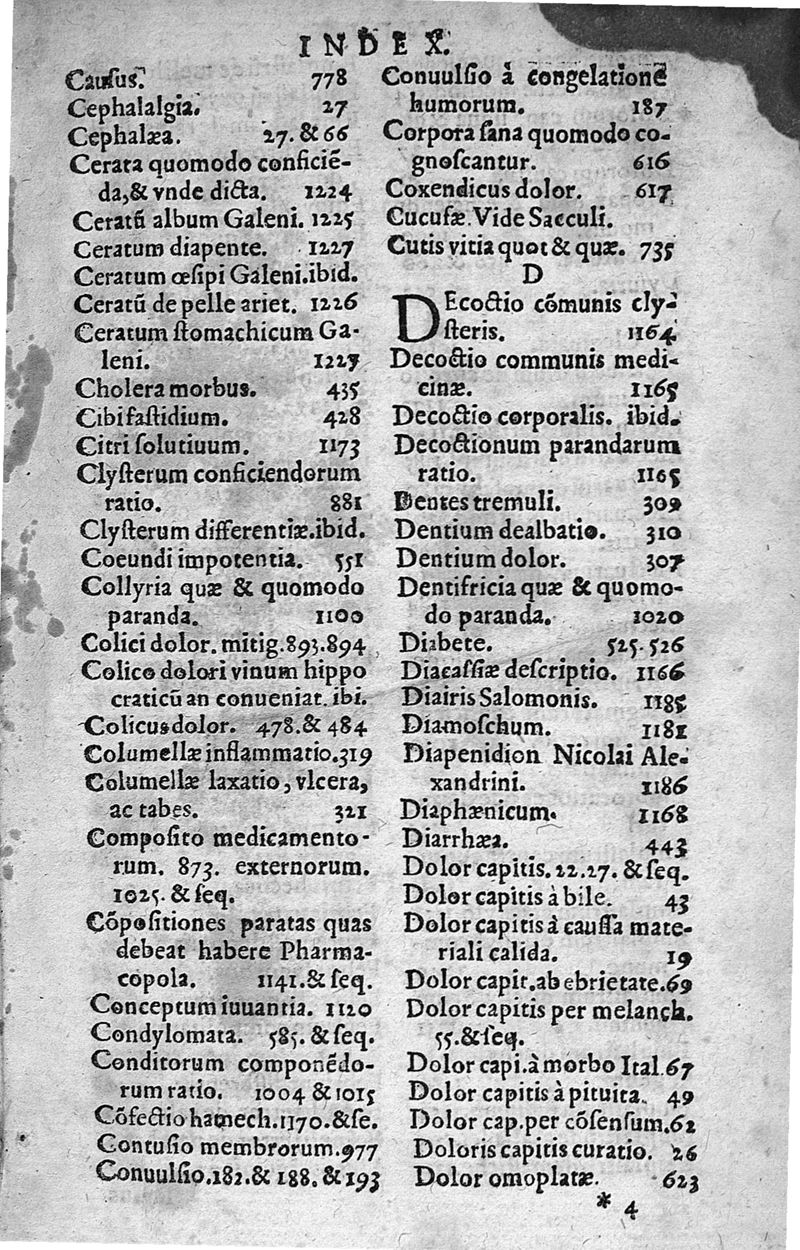 INDEX.
Causus. 778
Cephalalgia. 27
Cephalæa. 27. & 66
Cerata quomodo conficiē-
da, & vnde dicta. 1224
Ceratū album Galeni. 1225
Ceratum diapente. 1227
Ceratum œsipi Galeni. ibid.
Ceratū de pelle ariet. 1226
Ceratum ſtomachicum Ga-
leni. 1227
Cholera morbus. 435
Cibi faſtidium. 428
Citri ſolutiuum. 1173
Clyſterum conficiendorum
ratio. 881
Clyſterum differentiæ. ibid.
Coeundi impotentia. 551
Collyria quæ & quomodo
paranda. 1100
Colici dolor. mitig. 893. 894
Colico dolori vinum hippo
craticū an conueniat. ibi.
Colicus dolor. 478. & 484
Columellæ inflammatio. 319
Columellæ laxatio, vlcera,
ac tabes. 321
Compoſito medicamento-
rum. 873. externorum.
1025. & ſeq.
Cōpoſitiones paratas quas
debeat habere Pharma-
copola. 1141. & ſeq.
Conceptum iuuantia. 1120
Condylomata. 585. & ſeq.
Conditorum componēdo-
rum ratio. 1004 & 1015
Cōfectio hamech. 1170. & ſe.
Contuſio membrorum. 977
Conuulſio. 182. & 188. & 193
Conuulſio à congelatione
humorum. 187
Corpora ſana quomodo co-
gnoſcantur. 616
Coxendicus dolor. 617
Cucufæ. Vide Sacculi.
Cutis vitia quot & quæ. 735
D
DEcoctio cōmunis cly-
ſteris. 1164
Decoctio communis medi-
cinæ. 1165
Decoctio corporalis. ibid.
Decoctionum parandarum
ratio. 1165
Dentes tremuli. 309
Dentium dealbatio. 310
Dentium dolor. 307
Dentifricia quæ & quomo-
do paranda. 1020
Diabete. 525. 526
Diacaſſiæ deſcriptio. 1166
Diairis Salomonis. 1185
Diamoſchum. 1181
Diapenidion Nicolai Ale-
xandrini. 1186
Diaphænicum. 1168
Diarrhæa. 443
Dolor capitis. 22. 27. & ſeq.
Dolor capitis à bile. 43
Dolor capitis à cauſſa mate-
riali calida. 19
Dolor capit. ab ebrietate. 69
Dolor capitis per melanch.
55. & ſeq.
Dolor capi. à morbo Ital. 67
Dolor capitis à pituita. 49
Dolor cap. per cōſenſum. 62
Doloris capitis curatio. 26
Dolor omoplatæ. 623
* 4